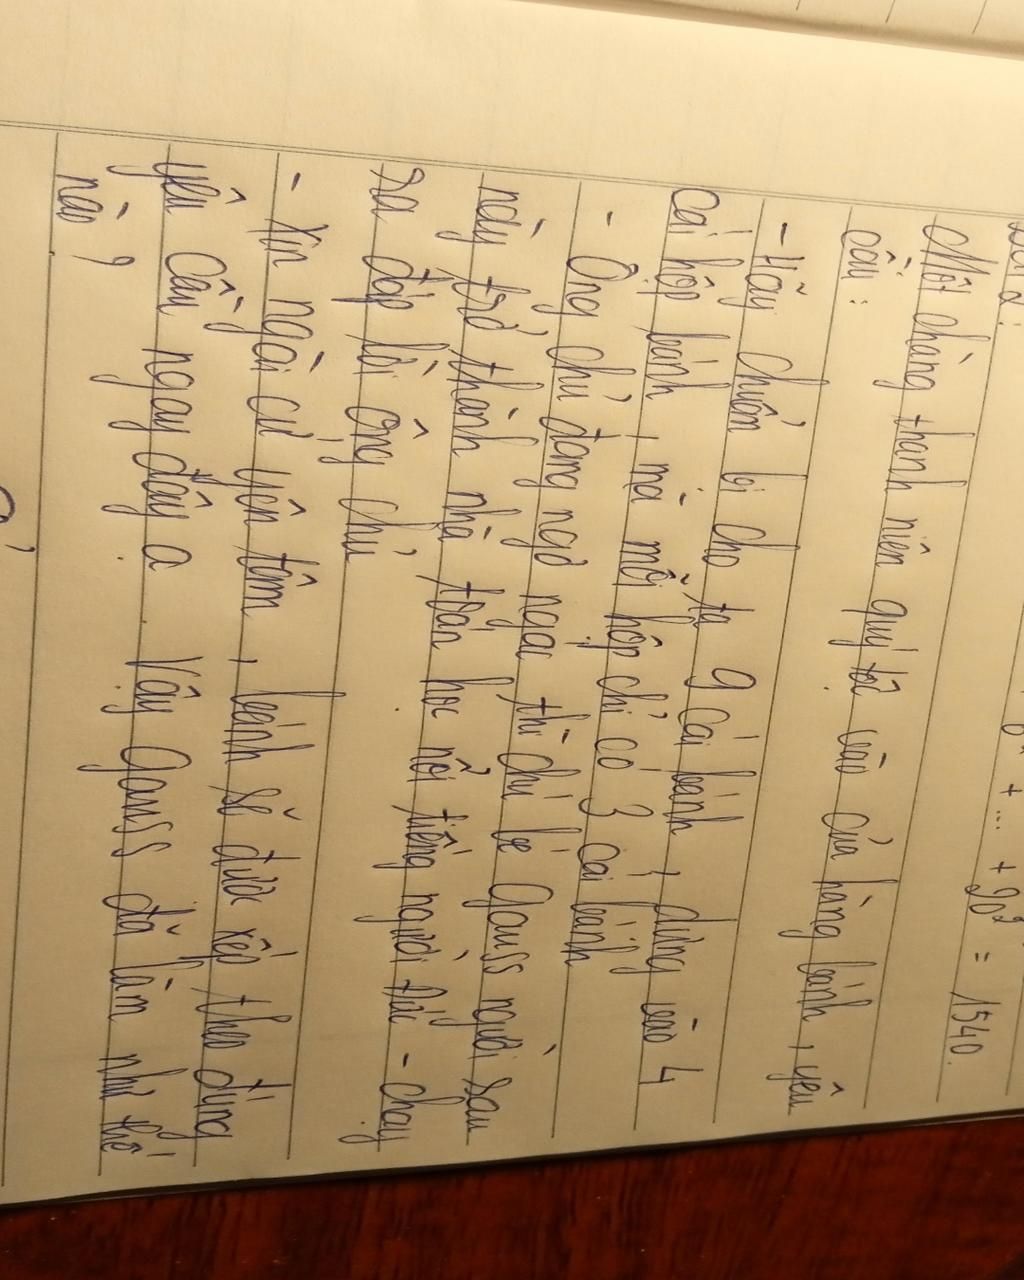 Bài 2:
+ ... + 90² = 1540.
Một chàng thanh niên quý tộc vào cửa hàng bánh, yêu
cầu:
- Hãy chuẩn bị cho ta 9 cái bánh, đựng vào 4
cái hộp bánh, mà mỗi hộp chỉ có 3 cái bánh
- Ông chủ đang ngơ ngác thì chú bé Gauss người sau
này trở thành nhà toán học nổi tiếng người Đức - chạy
ra đáp lời ông chủ
- Xin ngài cứ yên tâm, bánh sẽ được xếp theo đúng
yêu cầu ngay đây ạ. Vậy Gauss đã làm như thế
nào?